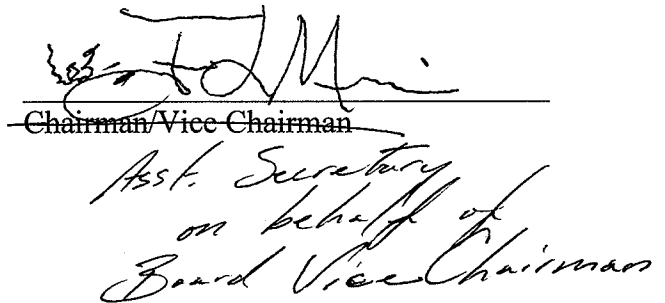 Chairman/Vice Chairman
Asst. Secretary
on behalf of
Board Vice Chairman